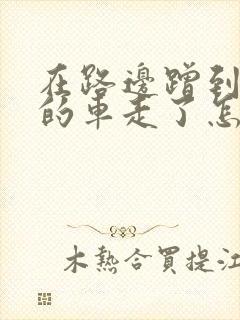 在路邊蹭到
的車走了怎
木熱合買提江